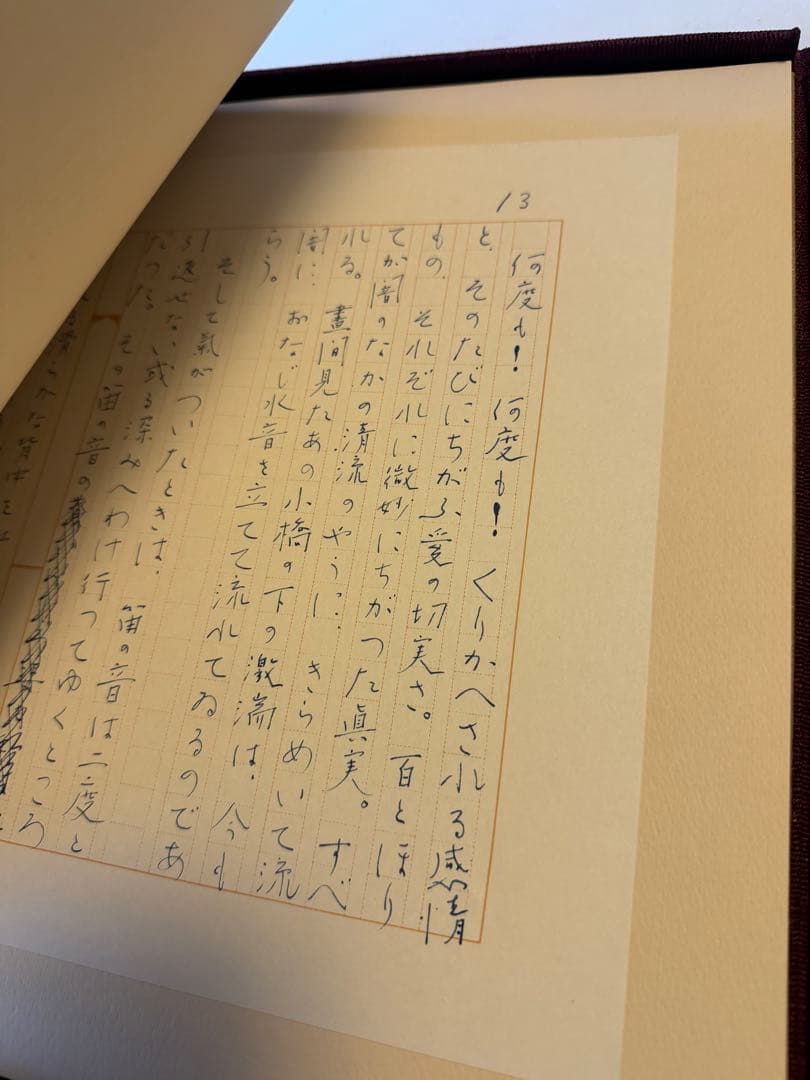 13
何度も!何度も!くりかへされる感情
と、そのたびにちがふ愛の切実さ。百とほり
もの、それぞれに微妙にちがつた眞実。すべ
てが闇のなかの清流のやうに、きらめいて流
れる。晝間見たあの小橋の下の激湍は、今も
闇に、おなじ水音を立てて流れてゐるのであ
らう。
そして氣がついたときは、笛の音は二度と
引返せない或る深みへわけ行つてゆくところ
だつた。その笛の音の